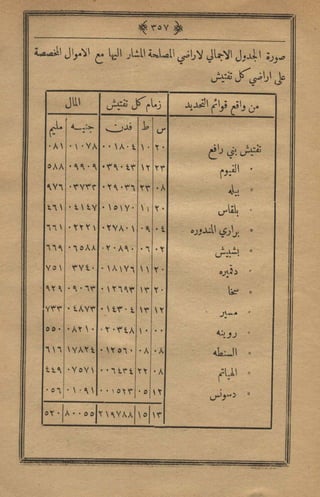 ﴿ ٣٥٧ ﴾
صورة الجدول الاجمالي لاراضي المصلحة المشار اليها مع الاموال المخصصة
على اراضي كل تفتيش
من واقع قوائم التحديد زمام كل تفتيش المال
س ط فدن جنيه مليم
تفتيش بني رافع ٢٠ ١٠ ٠٠١٨٠٤ ٠١٠٧٨ ٠٨١
» الفيوم ٢٣ ١٢ ٠٣٩٠٤٣ ٠٩٩٠٩ ٥٨٨
» بيله ٠٨ ٢٣ ٠٢٩٠٣٦ ٠٣٧٣٢ ٩٧٦
» بلقاس ٢٠ ١١ ٠١٥١٧٠ ٠٤١٤٧ ٤٦١
» براري المندوره ٠٩ ٠٤ ٠٢٧٨٠١ ٠٢٢٢١ ٦٦١
» بشبيش ٠٢ ٠٦ ٠٢٠٨٩٠ ٠٦٥٨٨ ٦٦٩
» دميره ٢٠ ١١ ٠١٨١٧٦ ٣٧٤٠ ٧٥١
» سخا ٢٠ ١٣ ٠١٢٦٩٣ ٠٩٠٦٣ ٩٢٩
» مسير ٠٠ ١٣ ٠١٤٣٠٤ ٠٤٨٧٣ ٧٣٣
» روينه ٠٠ ١٠ ٠٢٠٣٤٨ ٠٨٢١٠ ٥٥٠
» السنطه ٠٨ ٠٨ ٠١٢٥٦٠ ١٧٨٢٤ ٦١٦
» الهياتم ٠٨ ٢٢ ٠٠٦٤٣٤ ٠٧٥٧١ ٤٤٩
» دسونس ١٢ ٠٥ ٠٠١٥٢٣ ٠١٠٩١ ٠٥٦
١٣ ١٥ ٢١٩٧٨٨ ٨٠٠٥٥ ٥٢٠